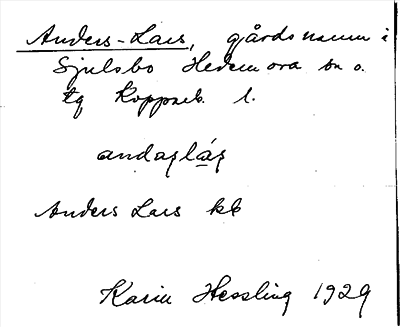 Anders-Lars, gårdsnamn i
Sjulsbo Hedemora sn o.
tg Kopparb. l.
andaṣlás
Anders Lars kb
Karin Hessling 1929